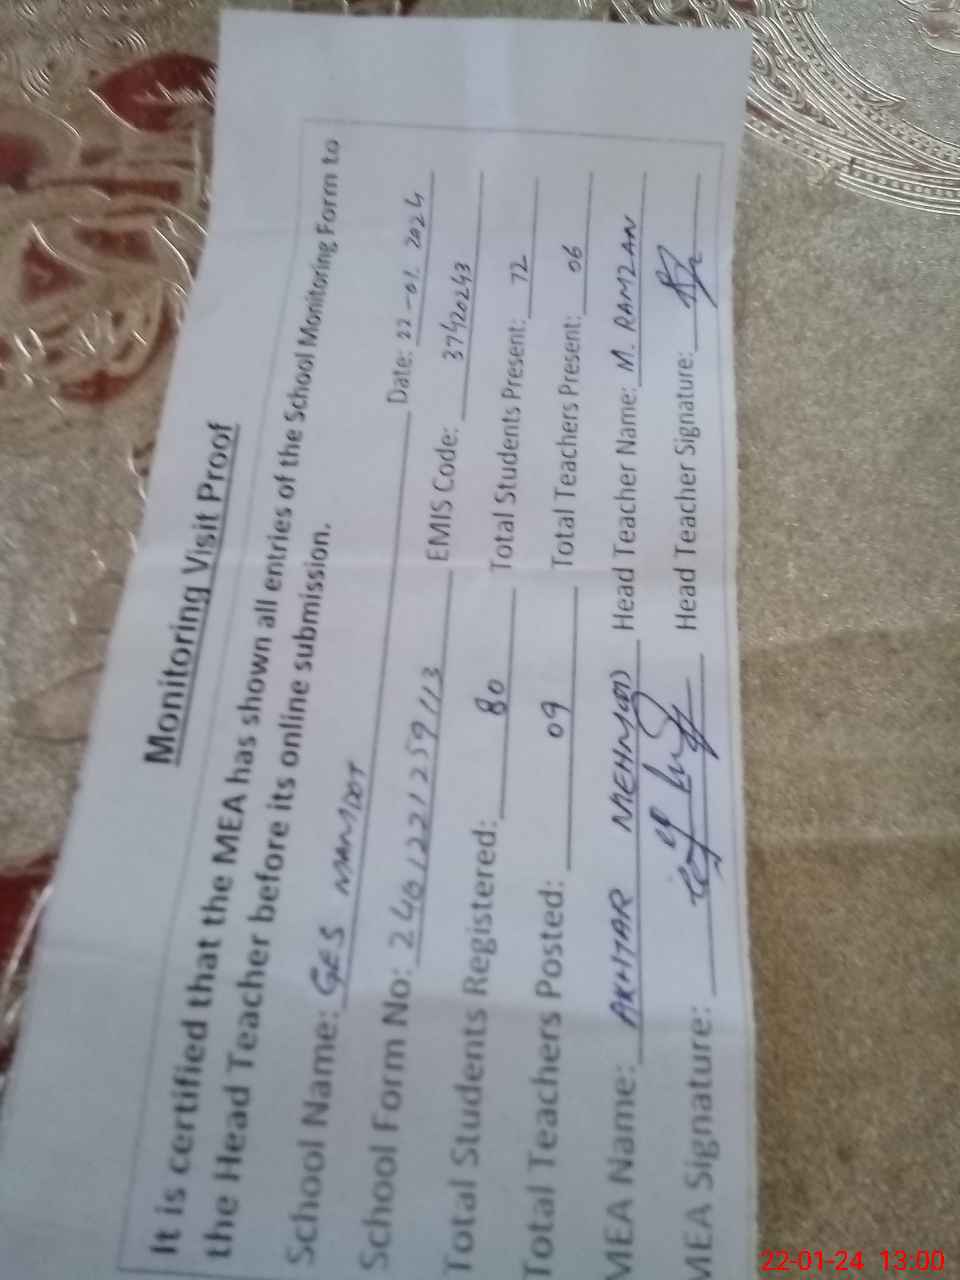 Monitoring Visit Proof
It is certified that the MEA has shown all entries of the School Monitoring Form to
the Head Teacher before its online submission.
School Name: GES MAMDOT Date: 22-01.2024
School Form No: 2401221259113 EMIS Code: 37420243
Total Students Registered: 80 Total Students Present: 72
Total Teachers Posted: 09 Total Teachers Present: 06
MEA Name: AKHTAR Head Teacher Name: M. RAMZAN
MEA Signature: Head Teacher Signature:
22-01-24 13:00